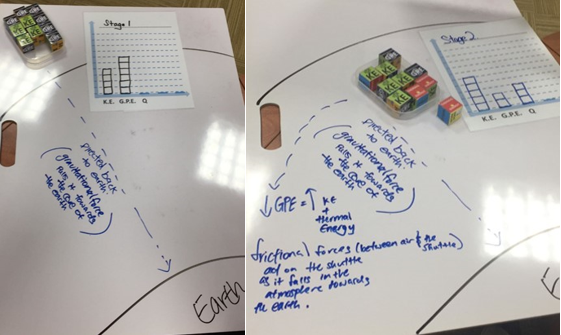 Stage 1
K.E. G.P.E. Q
back
to earth.
(gravitational force
pulls it towards
the core of
the earth)
Earth
Stage 2
K.E. G.P.E. Q
KE
back
to earth.
(gravitational force
pulls it towards
the core of
the earth)
↓ GPE = ↑ KE
+
thermal
Energy
frictional forces (between air & the
shuttle)
act on the shuttle
as it falls in the
atmosphere towards
the earth.
Ear